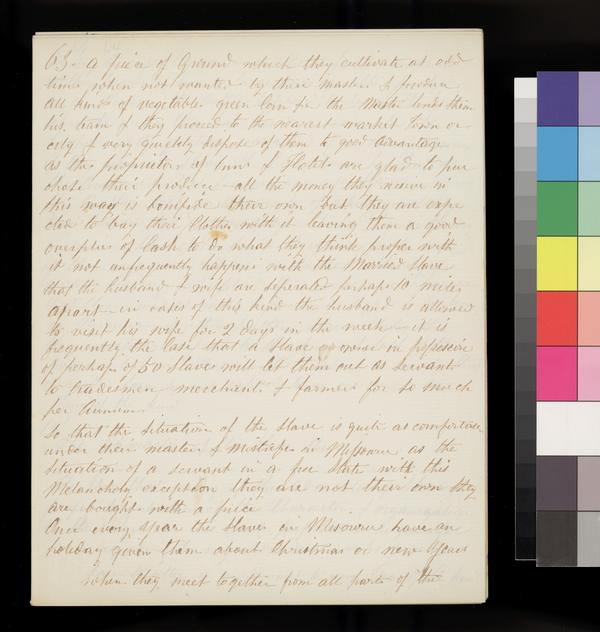 63- a piece of Ground which they cultivate at odd
times when not wanted by their master & produce
all kinds of vegetables green Corn for the Master lends them
his team & they proceed to the nearest market Town or
city & very quickly dispose of them to good advantage
as the proprietors of Inns & Hotels are glad to pur
chase their produce - all the money they receive in
this way is bonafide their own but they are expe
cted to buy their Clothes with it leaving them a good
overplus of Cash to do what they think proper with
it not unfrequently happens with the Married Slave
that the husband & wife are seperated perhaps 10 miles
apart - in cases of this kind the husband is allowed
to visit his wife for 2 days in the week - it is
frequently the Case that a Slave owner in possession
of perhaps of 50 Slaves will let them out as Servants
to tradesmen merchants & farmers for so much
per Annum
So that the situation of the Slave is quite as comfortable
under their master & Mistress in Missourie as the
situation of a servant in a free State with this
Melancholy exception they are not their own they
are bought with a price
Once every year the Slaves in Missourie have an
holiday given them about Christmas or new Years
when they meet together from all parts of the